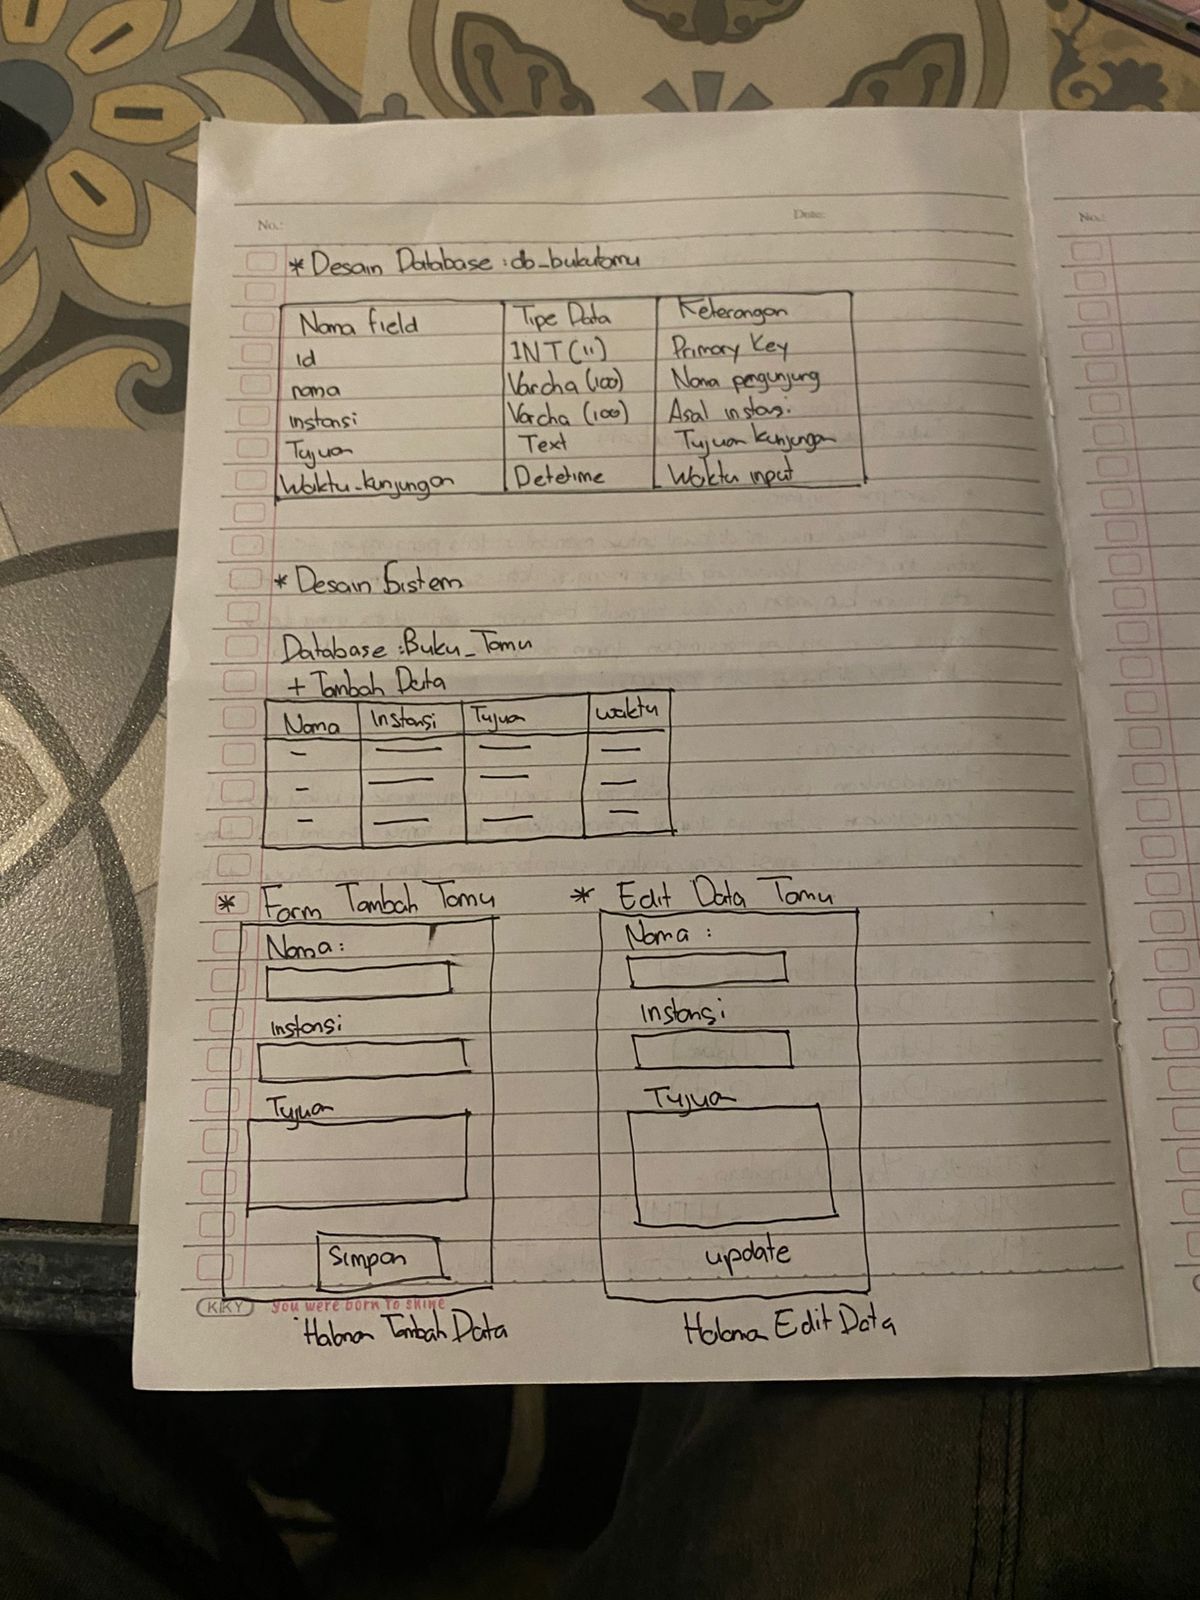 No.:
Date:
No.:
* Desain Database : db_bukutamu
Nama field Tipe Data Keterangan
id INT (11) Primary Key
nama Varcha (100) Nama pengunjung
instansi Varcha (100) Asal instasi
Tujuan Text Tujuan kunjungan
Waktu_kunjungan Detetime Waktu input
* Desain Sistem
Database : Buku_Tamu
+ Tambah Data
Nama Instansi Tujuan waktu
* Form Tambah Tamu
Nama :
Instansi
Tujuan
Simpan
Halaman Tambah Data
* Edit Data Tamu
Nama :
Instansi
Tujuan
update
Halama Edit Data
KIKY you were born to shine